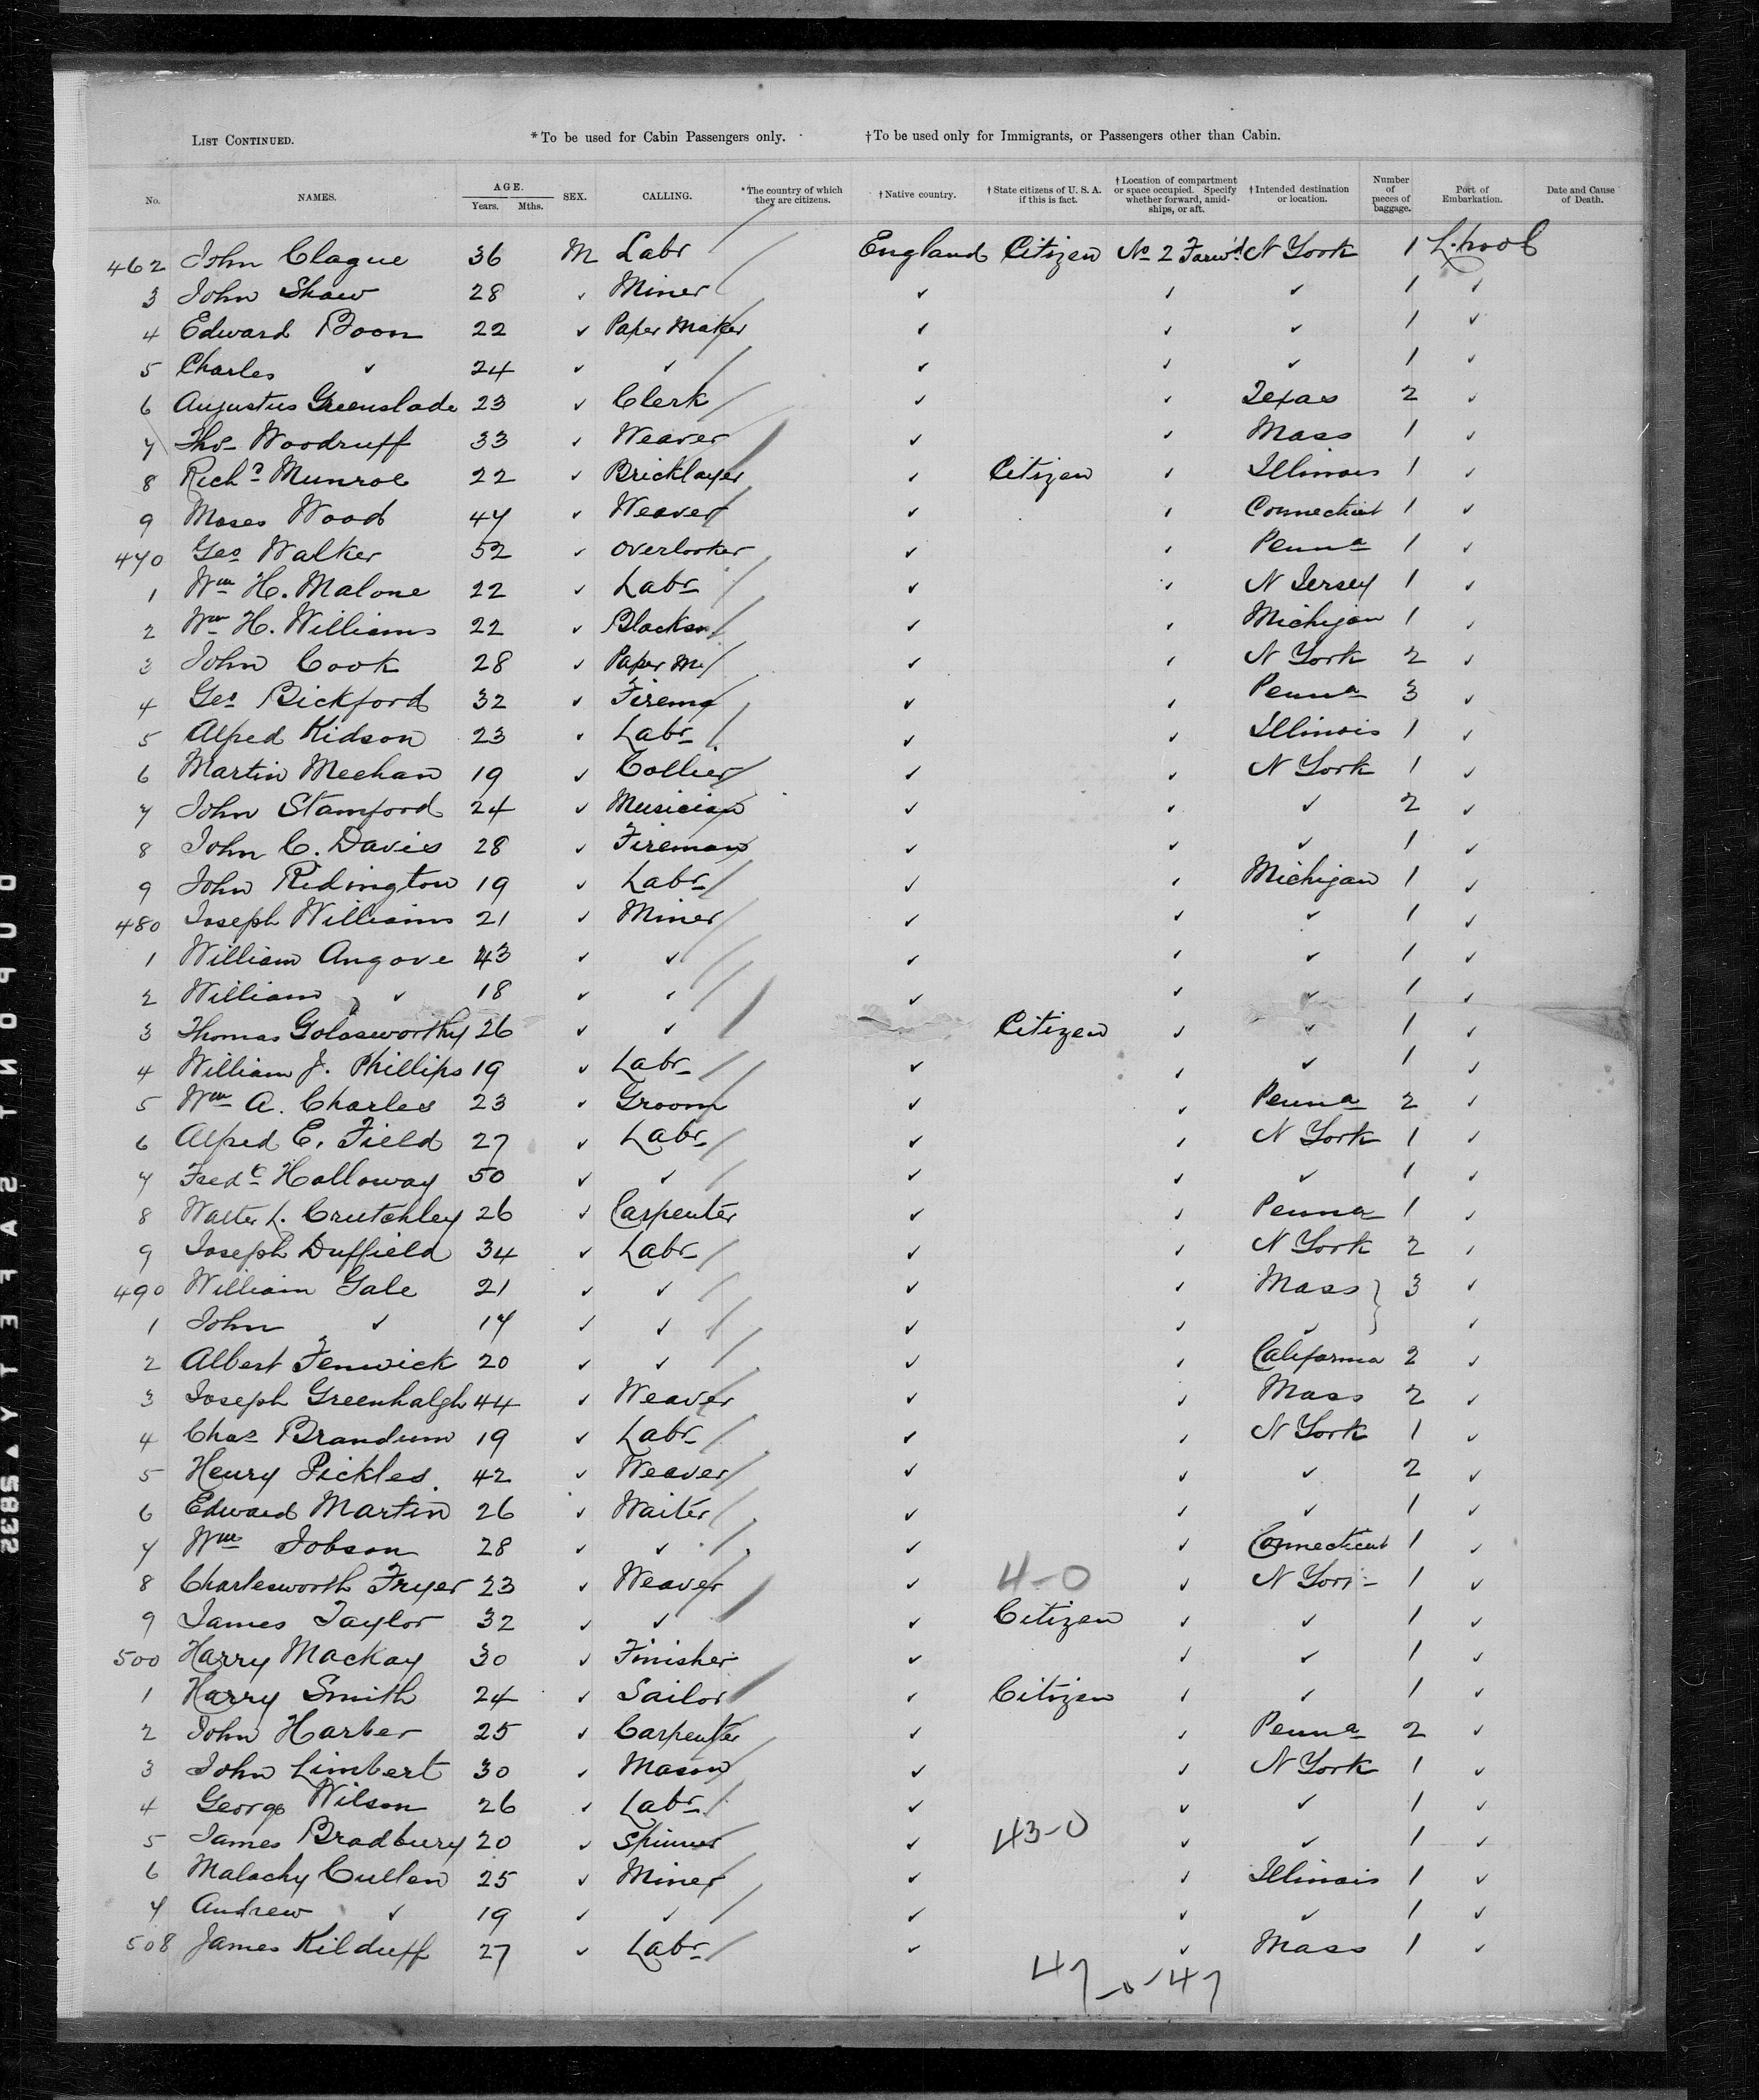 LIST CONTINUED. *To be used for Cabin Passengers only. †To be used only for Immigrants, or Passengers other than Cabin.
No. NAMES. AGE. Years. Mths. SEX. CALLING. *The country of which they are citizens. †Native country. †State citizens of U. S. A. if this is fact. †Location of compartment or space occupied. Specify whether forward, amidships, or aft. †Intended destination or location. Number of pieces of baggage. Port of Embarkation. Date and Cause of Death.
462 John Clague 36 M Labr England Citizen No 2 Farwd N York 1 L.pool
3 John Shaw 28 ✓ Miner ✓ ✓ ✓ 1 ✓
4 Edward Boon 22 ✓ Paper Maker ✓ ✓ ✓ 1 ✓
5 Charles ✓ 24 ✓ ✓ ✓ ✓ ✓ 1 ✓
6 Augustus Greenslade 23 ✓ Clerk ✓ ✓ Texas 2 ✓
7 Thos Woodruff 33 ✓ Weaver ✓ ✓ Mass 1 ✓
8 Richd Munroe 22 ✓ Bricklayer ✓ Citizen ✓ Illinois 1 ✓
9 Moses Wood 47 ✓ Weaver ✓ ✓ Connecticut 1 ✓
470 Geo Walker 52 ✓ Overlooker ✓ ✓ Penna 1 ✓
1 Wm H. Malone 22 ✓ Labr ✓ ✓ N Jersey 1 ✓
2 Wm H. Williams 22 ✓ Blacksm ✓ ✓ Michigan 1 ✓
3 John Cook 28 ✓ Paper M ✓ ✓ N York 2 ✓
4 Geo Bickford 32 ✓ Firema ✓ ✓ Penna 3 ✓
5 Alfred Kidson 23 ✓ Labr ✓ ✓ Illinois 1 ✓
6 Martin Meehan 19 ✓ Collier ✓ ✓ N York 1 ✓
7 John Stamford 24 ✓ Musician ✓ ✓ ✓ 2 ✓
8 John C. Davies 28 ✓ Fireman ✓ ✓ ✓ 1 ✓
9 John Ridington 19 ✓ Labr ✓ ✓ Michigan 1 ✓
480 Joseph Williams 21 ✓ Miner ✓ ✓ ✓ 1 ✓
1 William Angove 43 ✓ ✓ ✓ ✓ ✓ 1 ✓
2 William ✓ 18 ✓ ✓ ✓ ✓ ✓ 1 ✓
3 Thomas Goldsworthy 26 ✓ ✓ Citizen ✓ ✓ 1 ✓
4 William J. Phillips 19 ✓ Labr ✓ ✓ ✓ 1 ✓
5 Wm A. Charles 23 ✓ Groom ✓ ✓ Penna 2 ✓
6 Alfred E. Field 27 ✓ Labr ✓ ✓ N York 1 ✓
7 Fredc Holloway 50 ✓ ✓ ✓ ✓ ✓ 1 ✓
8 Walter L. Crutchley 26 ✓ Carpenter ✓ ✓ Penna 1 ✓
9 Joseph Duffield 34 ✓ Labr ✓ ✓ N York 2 ✓
490 William Gale 21 ✓ ✓ ✓ ✓ Mass 3 ✓
1 John ✓ 17 ✓ ✓ ✓ ✓ ✓ ✓
2 Albert Fenwick 20 ✓ ✓ ✓ ✓ California 2 ✓
3 Joseph Greenhalgh 44 ✓ Weaver ✓ ✓ Mass 2 ✓
4 Chas Brandum 19 ✓ Labr ✓ ✓ N York 1 ✓
5 Henry Pickles 42 ✓ Weaver ✓ ✓ ✓ 2 ✓
6 Edward Martin 26 ✓ Waiter ✓ ✓ ✓ 1 ✓
7 Wm Jobson 28 ✓ ✓ ✓ ✓ Connecticut 1 ✓
8 Charlesworth Fryer 23 ✓ Weaver ✓ 4-0 ✓ N York 1 ✓
9 James Taylor 32 ✓ ✓ ✓ Citizen ✓ ✓ 1 ✓
500 Harry Mackay 30 ✓ Finisher ✓ ✓ ✓ 1 ✓
1 Harry Smith 24 ✓ Sailor ✓ Citizen ✓ ✓ 1 ✓
2 John Harber 25 ✓ Carpenter ✓ ✓ Penna 2 ✓
3 John Limbert 30 ✓ Mason ✓ ✓ N York 1 ✓
4 George Wilson 26 ✓ Labr ✓ ✓ ✓ 1 ✓
5 James Bradbury 20 ✓ Spinner ✓ 43-0 ✓ ✓ 1 ✓
6 Malachy Cullen 25 ✓ Miner ✓ ✓ Illinois 1 ✓
7 Andrew ✓ 19 ✓ ✓ ✓ ✓ ✓ 1 ✓
508 James Kilduff 27 ✓ Labr ✓ ✓ Mass 1 ✓
47-0-47
DUPONT SAFETY 5832